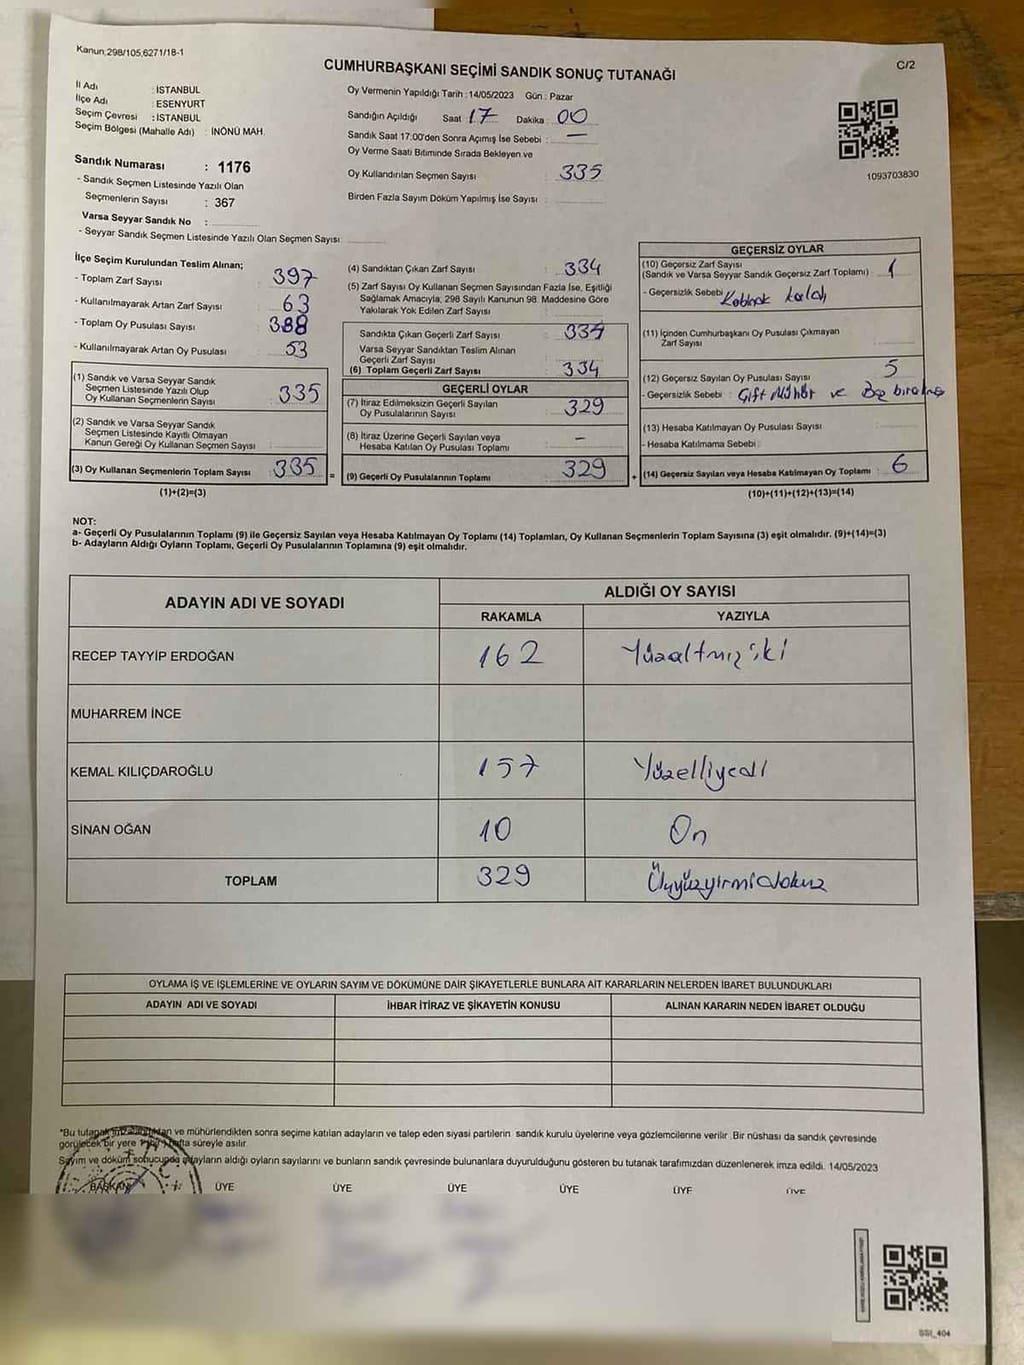 Kanun:298/105,6271/18-1
C/2
CUMHURBAŞKANI SEÇİMİ SANDIK SONUÇ TUTANAĞI
İl Adı : İSTANBUL
İlçe Adı : ESENYURT
Seçim Çevresi : İSTANBUL
Seçim Bölgesi (Mahalle Adı) : İNÖNÜ MAH.
Sandık Numarası : 1176
- Sandık Seçmen Listesinde Yazılı Olan
Seçmenlerin Sayısı : 367
Varsa Seyyar Sandık No :
- Seyyar Sandık Seçmen Listesinde Yazılı Olan Seçmen Sayısı:
Oy Vermenin Yapıldığı Tarih :14/05/2023 Gün : Pazar
Sandığın Açıldığı Saat 17 Dakika : 00
Sandık Saat 17:00'den Sonra Açımış İse Sebebi : —
Oy Verme Saati Bitiminde Sırada Bekleyen ve
Oy Kullandırılan Seçmen Sayısı : 335
Birden Fazla Sayım Döküm Yapılmış İse Sayısı :
1093703830
İlçe Seçim Kurulundan Teslim Alınan;
- Toplam Zarf Sayısı : 397
- Kullanılmayarak Artan Zarf Sayısı : 63
- Toplam Oy Pusulası Sayısı : 388
- Kullanılmayarak Artan Oy Pusulası : 53
(1) Sandık ve Varsa Seyyar Sandık
Seçmen Listesinde Yazılı Olup
Oy Kullanan Seçmenlerin Sayısı : 335
(2) Sandık ve Varsa Seyyar Sandık
Seçmen Listesinde Kayıtlı Olmayan
Kanun Gereği Oy Kullanan Seçmen Sayısı :
(3) Oy Kullanan Seçmenlerin Toplam Sayısı : 335
(1)+(2)=(3)
(4) Sandıktan Çıkan Zarf Sayısı : 334
(5) Zarf Sayısı Oy Kullanan Seçmen Sayısından Fazla İse, Eşitliği
Sağlamak Amacıyla; 298 Sayılı Kanunun 98. Maddesine Göre
Yakılarak Yok Edilen Zarf Sayısı :
Sandıkta Çıkan Geçerli Zarf Sayısı : 334
Varsa Seyyar Sandıktan Teslim Alınan
Geçerli Zarf Sayısı :
(6) Toplam Geçerli Zarf Sayısı : 334
GEÇERLİ OYLAR
(7) İtiraz Edilmeksizin Geçerli Sayılan
Oy Pusulalarının Sayısı : 329
(8) İtiraz Üzerine Geçerli Sayılan veya
Hesaba Katılan Oy Pusulası Toplamı : –
=
(9) Geçerli Oy Pusulalarının Toplamı : 329
+
GEÇERSİZ OYLAR
(10) Geçersiz Zarf Sayısı
(Sandık ve Varsa Seyyar Sandık Geçersiz Zarf Toplamı) : 1
- Geçersizlik Sebebi : Kabinde kaldı
(11) İçinden Cumhurbaşkanı Oy Pusulası Çıkmayan
Zarf Sayısı :
(12) Geçersiz Sayılan Oy Pusulası Sayısı : 5
- Geçersizlik Sebebi : Çift Mühür ve Boş bırakma
(13) Hesaba Katılmayan Oy Pusulası Sayısı :
- Hesaba Katılmama Sebebi :
(14) Geçersiz Sayılan veya Hesaba Katılmayan Oy Toplamı : 6
(10)+(11)+(12)+(13)=(14)
NOT:
a- Geçerli Oy Pusulalarının Toplamı (9) ile Geçersiz Sayılan veya Hesaba Katılmayan Oy Toplamı (14) Toplamları, Oy Kullanan Seçmenlerin Toplam Sayısına (3) eşit olmalıdır. (9)+(14)=(3)
b- Adayların Aldığı Oyların Toplamı, Geçerli Oy Pusulalarının Toplamına (9) eşit olmalıdır.
ADAYIN ADI VE SOYADI
ALDIĞI OY SAYISI
RAKAMLA YAZIYLA
RECEP TAYYİP ERDOĞAN 162 Yüzaltmışiki
MUHARREM İNCE
KEMAL KILIÇDAROĞLU 157 Yüzelliyedi
SİNAN OĞAN 10 On
TOPLAM 329 Üçyüzyirmidokuz
OYLAMA İŞ VE İŞLEMLERİNE VE OYLARIN SAYIM VE DÖKÜMÜNE DAİR ŞİKAYETLERLE BUNLARA AİT KARARLARIN NELERDEN İBARET BULUNDUKLARI
ADAYIN ADI VE SOYADI İHBAR İTİRAZ VE ŞİKAYETİN KONUSU ALINAN KARARIN NEDEN İBARET OLDUĞU
*Bu tutanak imzalandıktan ve mühürlendikten sonra seçime katılan adayların ve talep eden siyasi partilerin sandık kurulu üyelerine veya gözlemcilerine verilir .Bir nüshası da sandık çevresinde
görülecek bir yere 1 (bir) hafta süreyle asılır.
Sayım ve döküm sonucunda adayların aldığı oyların sayılarını ve bunların sandık çevresinde bulunanlara duyurulduğunu gösteren bu tutanak tarafımızdan düzenlenerek imza edildi. 14/05/2023
BAŞKAN ÜYE ÜYE ÜYE ÜYE ÜYE ÜYE
SSI_404